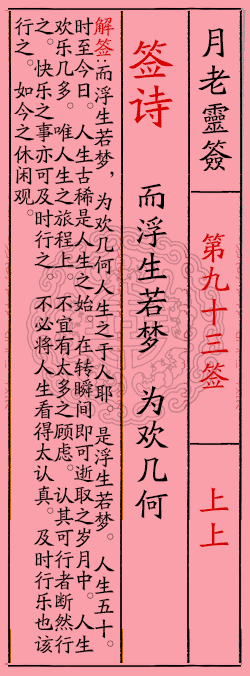 月老靈簽
第九十三签
上上
签诗
而浮生若梦 为欢几何
解签:而浮生若梦,为欢几何人生之于人耶。是浮生若梦。人生五十。
时至今日。人生古稀是人生之始。在转瞬间即可逝取之岁月中。人生
欢乐几多。唯人生之旅程上。不宜有太多之顾虑。认其可行者断然行
之。快乐之事亦可及时行之。不必将人生看得太认真。及时行乐也该
行之。如今之休闲观。